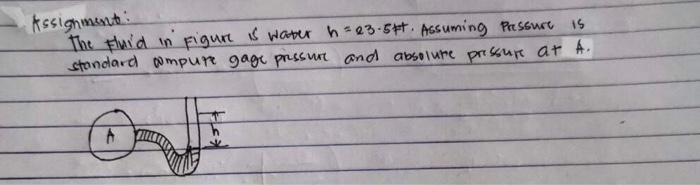 Assignment:
The Fluid in Figure is water h = 23.5ft. Assuming Pressure is
standard compute gage pressure and absolute pressure at A.
A
h